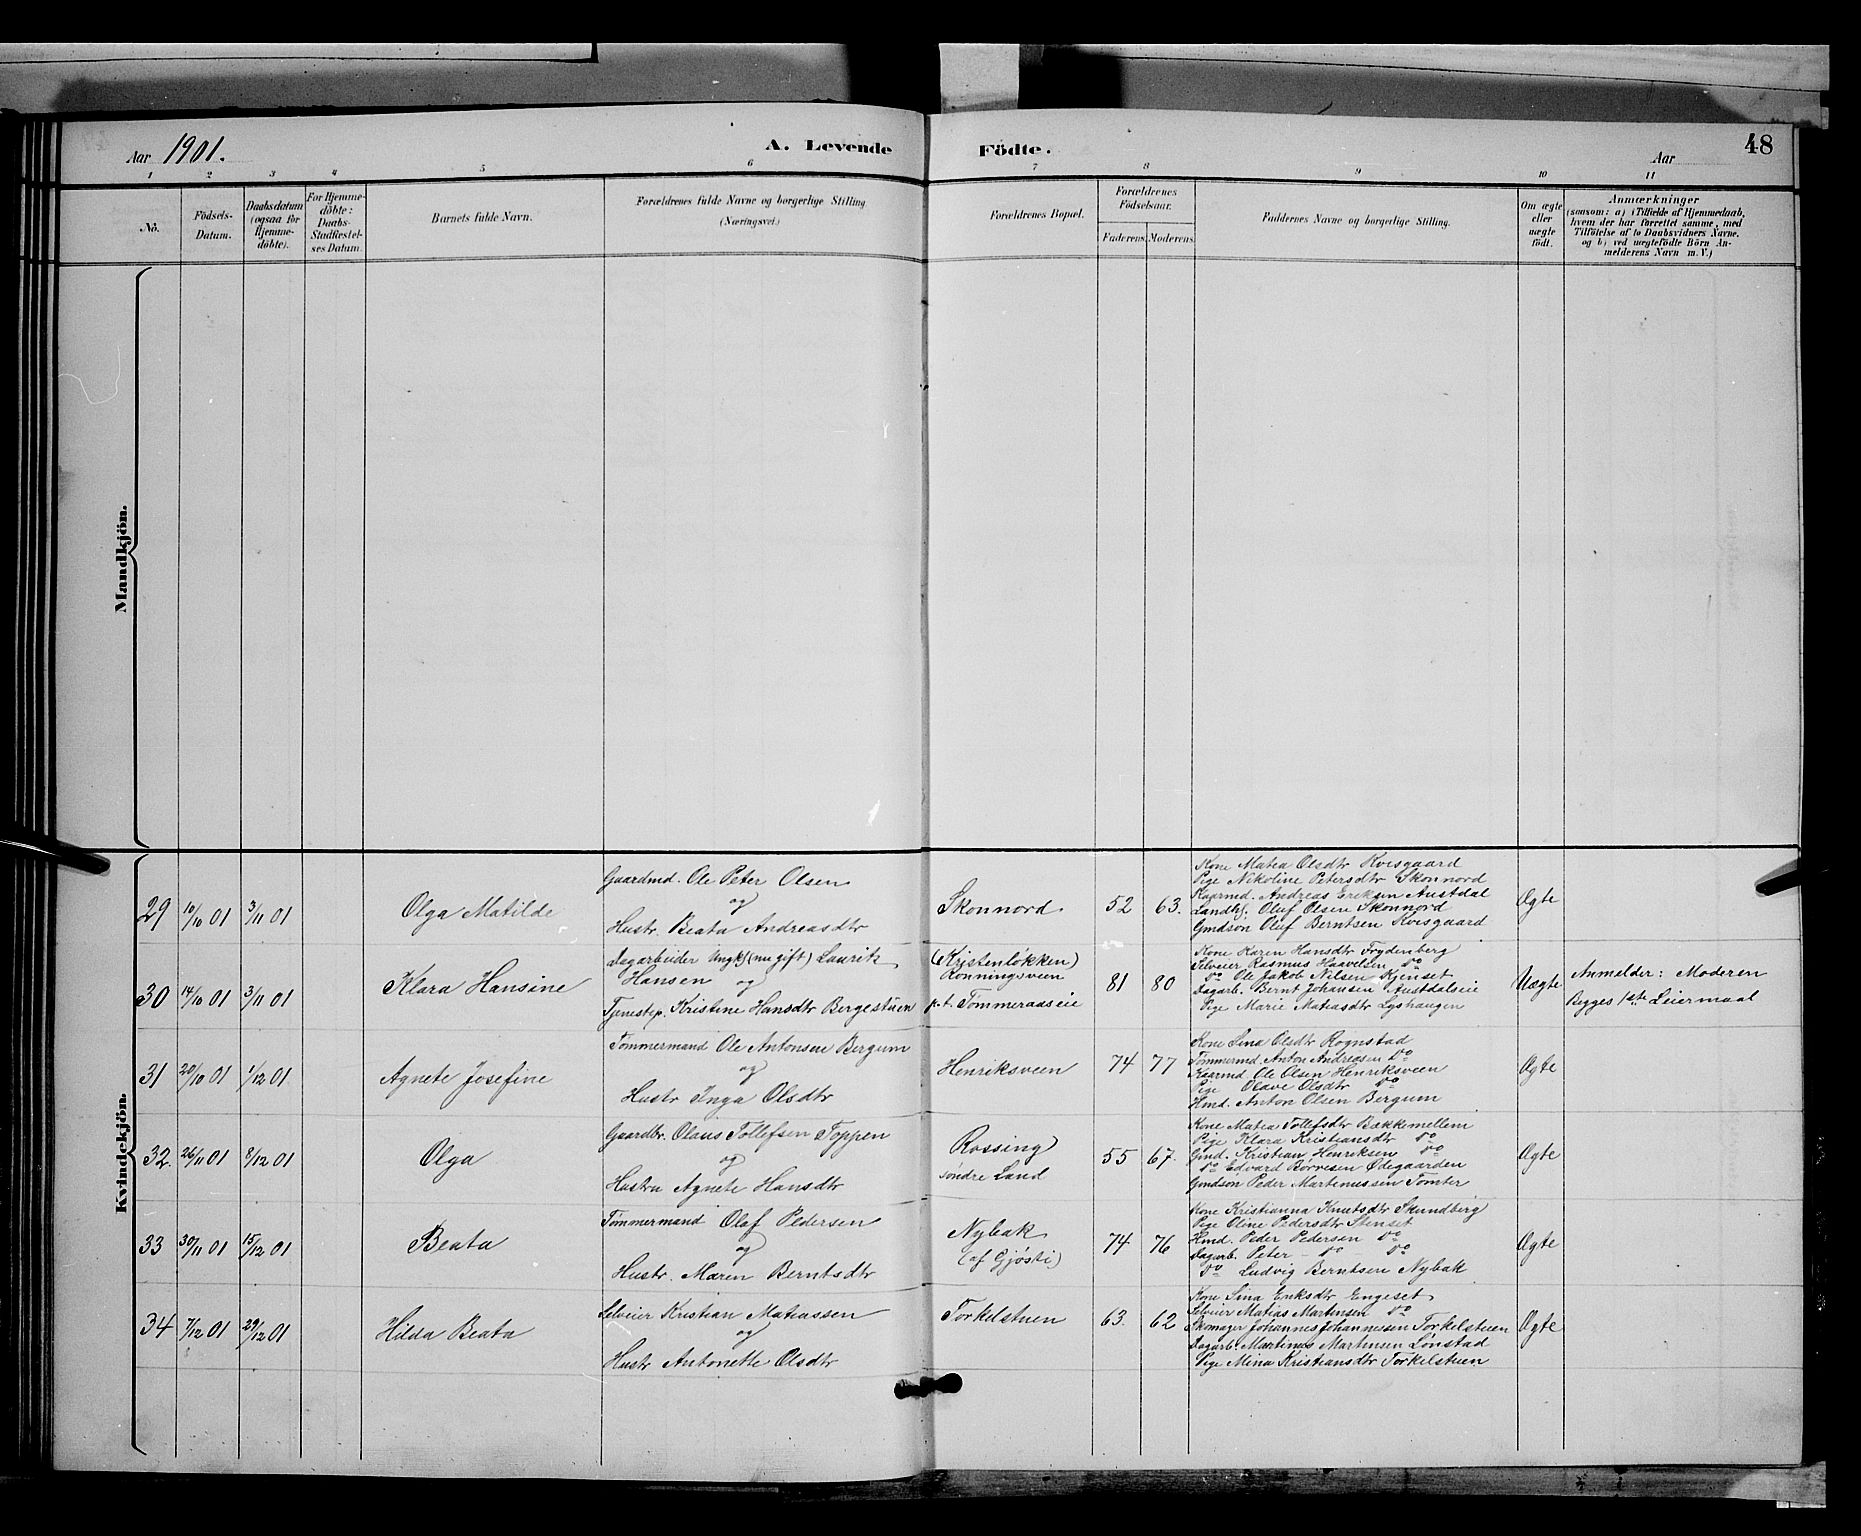 Aar 1901.
A. Levende Födte.
Aar
48
1 2 3 4 5 6 7 8 9 10 11
No.
Födsels-Datum.
Daabsdatum (ogsaa for Hjemme-döbte).
For Hjemme-döbte: Daabs-Stadfestel-ses Datum.
Barnets fulde Navn.
Forældrenes fulde Navne og borgerlige Stilling
(Næringsvei.)
Forældrenes Bopæl.
Forældrenes Födselsaar.
Faderens. Moderens.
Faddernes Navne og borgerlige Stilling.
Om ægte eller uægte födt.
Anmærkninger
(saasom: a) i Tilfælde af Hjemmedaab,
hvem der har forrettet samme, med
Tilföielse af to Daabsvidners Navne.
og b) ved uægtefödte Börn An-
melderens Navn m. V.)
Mandkjön.
Kvindekjön.
29 10/10 01 3/11 01 Olga Matilde
Gaardmd. Ole Peter Olsen
og
Hustr. Beata Andreasdtr
Skonnord 52 63.
Kone Matea Olsdtr Kvisgaard
Pige Nikoline Petersdtr Skonnord
Kaarmd. Andreas Eriksen Austdal
Landh. Oluf Olsen Skonnord
Gmdsøn Oluf Berntsen Kvisgaard
Ægte
30 14/10 01 3/11 01 Klara Hansine
Dagarbeider Ungk. (nu gift) Lauritz
Hansen og
Tjenestep. Kristine Hansdtr Bergestuen
(Kristenløkken)
Rønningsveen
p.t. Tømmeraaseie
81 80
Kone Karen Hansdtr Frydenberg
Selveier Rasmus Haavelsen do
do Ole Jakob Nilsen Kjenset
Dagarb. Bernt Johansen Austdaleie
Pige Marie Matiasdtr Lyshaugen
Uægte
Anmelder: Moderen
Begges 1ste Leiermaal
31 20/10 01 1/12 01 Agnete Josefine
Tømmermand Ole Antonsen Bergum
og
Hustr Inga Olsdtr
Henriksveen 74 77
Kone Lina Olsdtr Rognstad
Tømmermd. Anton Andreasen do
Kaarmd. Ole Olsen Henriksveen
Pige Olave Olsdtr do
Hmd. Anton Olsen Bergum
Ægte
32. 26/11 01 8/12 01 Olga
Gaardbr. Olaus Tollefsen Toppen
og
Hustru Agnete Hansdtr
Røssing
søndre Land
55 67.
Kone Matea Tollefsdtr Bækkemellem
Pige Klara Kristiansdtr do
Gmd. Kristian Henriksen do
do Edvard Børresen Ødegaarden
Gmdsøn Peder Martinussen Tomter
Ægte
33 30/11 01 15/12 01 Beata
Tømmermand Olaf Pedersen
og
Hustr. Maren Berntsdtr
Nybak
(af Gjøsti)
74 76
Kone Kristianna Knutsdtr Skundberg
Pige Oline Pedersdtr Stenset
Hmd. Peder Pedersen do
Dagarb. Peter do do
do Ludvig Berntsen Nybak
Ægte
34 7/12 01 29/12 01 Hilda Beata
Selveier Kristian Matiassen
og
Hustr Antonette Olsdtr
Torkelstuen 63. 62
Kone Lina Eriksdtr Engeset
Selveier Matias Martinsen do
Skomager Johannes Johannessen Torkelstuen
Dagarb. Martinus Martinsen Lønstad
Pige Mina Kristiansdtr Torkelstuen
Ægte